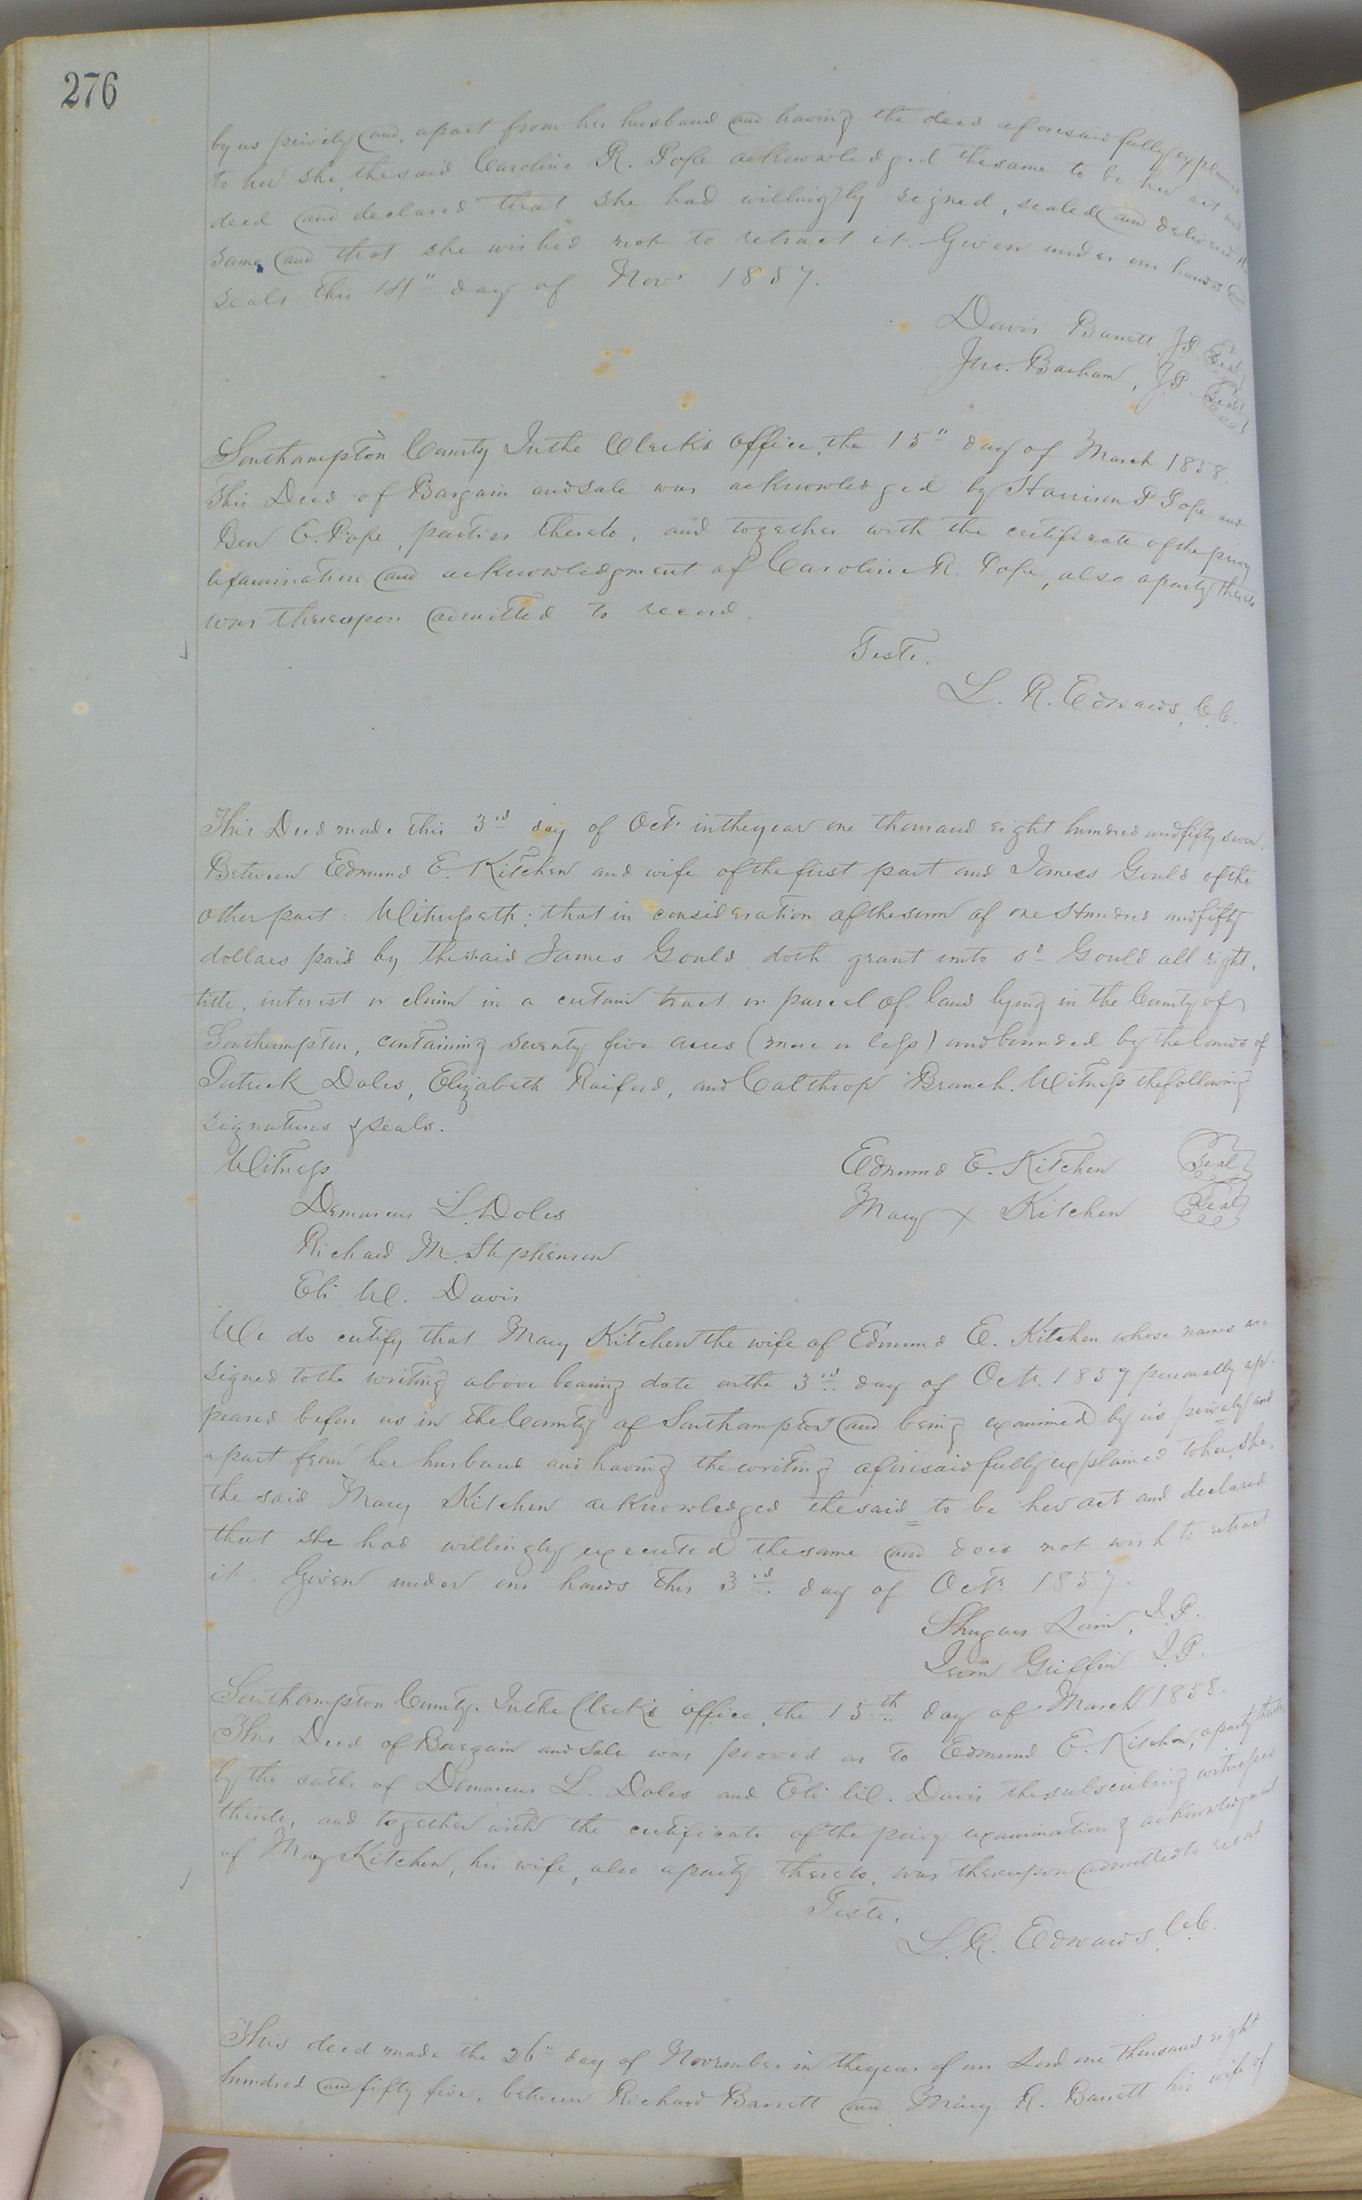 276
by us privily and apart from her husband and having the deed aforesaid fully explained
to her she, the said Caroline R. Pope acknowledged the same to be her act and
deed and declared that she had willingly signed, sealed and delivered the
same and that she wished not to retract it. Given under our hands and
seals this 14" day of Nov. 1857.
Davis Barrett, J.P. Seal
Jno. Barham, J.P. Seal
Southampton County In the Clerk's office, the 15" day of March 1858.
This Deed of Bargain and sale was acknowledged by Harrison P Pope and
Ben E. Pope, parties thereto, and together with the certificate of the privy
examination and acknowledgment of Caroline R. Pope, also a party thereto
was thereupon admitted to record.
Teste.
L. R. Edwards, C.C.
This Deed made this 3rd day of Oct. in the year one thousand eight hundred and fifty seven.
Between Edmund E. Kitchen and wife of the first part and James Gould of the
other part: Witnesseth; that in consideration of the sum of one Hundred and fifty
dollars paid by the said James Gould, doth grant unto sd Gould all right,
title, interest or claim in a certain tract or parcel of land lying in the County of
Southampton, containing seventy five acres (more or less) and bounded by the lands of
Patrick Doles, Elizabeth Raiford, and Calthrop Branch. Witness the following
signatures & seals.
Witness
Edmund E. Kitchen Seal
Demarcus L. Doles
Mary X Kitchen Seal
Richard M. Stephenson
Eli W. Davis
We do certify that Mary Kitchen the wife of Edmund E. Kitchen whose names are
signed to the writing above bearing date on the 3rd day of Oct. 1857 personally ap-
peared before us in the County of Southampton and being examined by us privately and
apart from her husband and having the writing aforesaid fully explained to her, she,
the said Mary Kitchen acknowledged the said to be her act and declared
that she had willingly executed the same and does not wish to retract
it. Given under our hands this 3rd day of Oct. 1857.
J.P.
Griffin J.P.
Southampton County. In the Clerk's office, the 15th day of March 1858.
This Deed of Bargain and Sale was proved as to Edmund E. Kitchen, a party thereto
by the oaths of Demarcus L. Doles and Eli W. Davis the subscribing witnesses
thereto, and together with the certificate of the privy examination & acknowledgment
of Mary Kitchen, his wife, also a party thereto, was thereupon admitted to record
Teste.
L. R. Edwards, C.C.
This deed made the 26" day of November in the year of our Lord one thousand eight
hundred and fifty five, between Richard Barrett and Mary R. Barrett his wife of